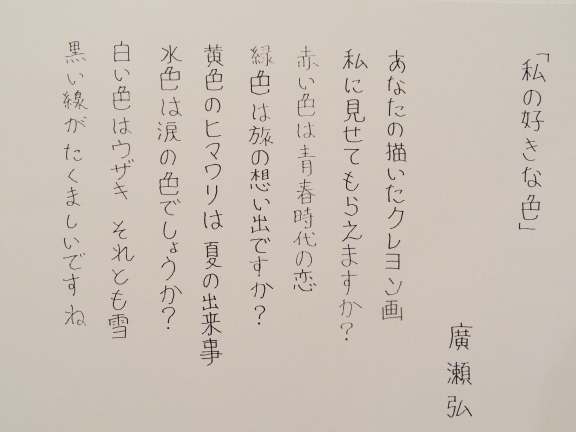 「私の好きな色」
廣瀬弘
あなたの描いたクレヨン画
私に見せてもらえますか?
赤い色は青春時代の恋
緑色は旅の想い出ですか?
黄色のヒマワリは 夏の出来事
水色は涙の色でしょうか?
白い色はウザキ それとも雪
黒い線がたくましいですね